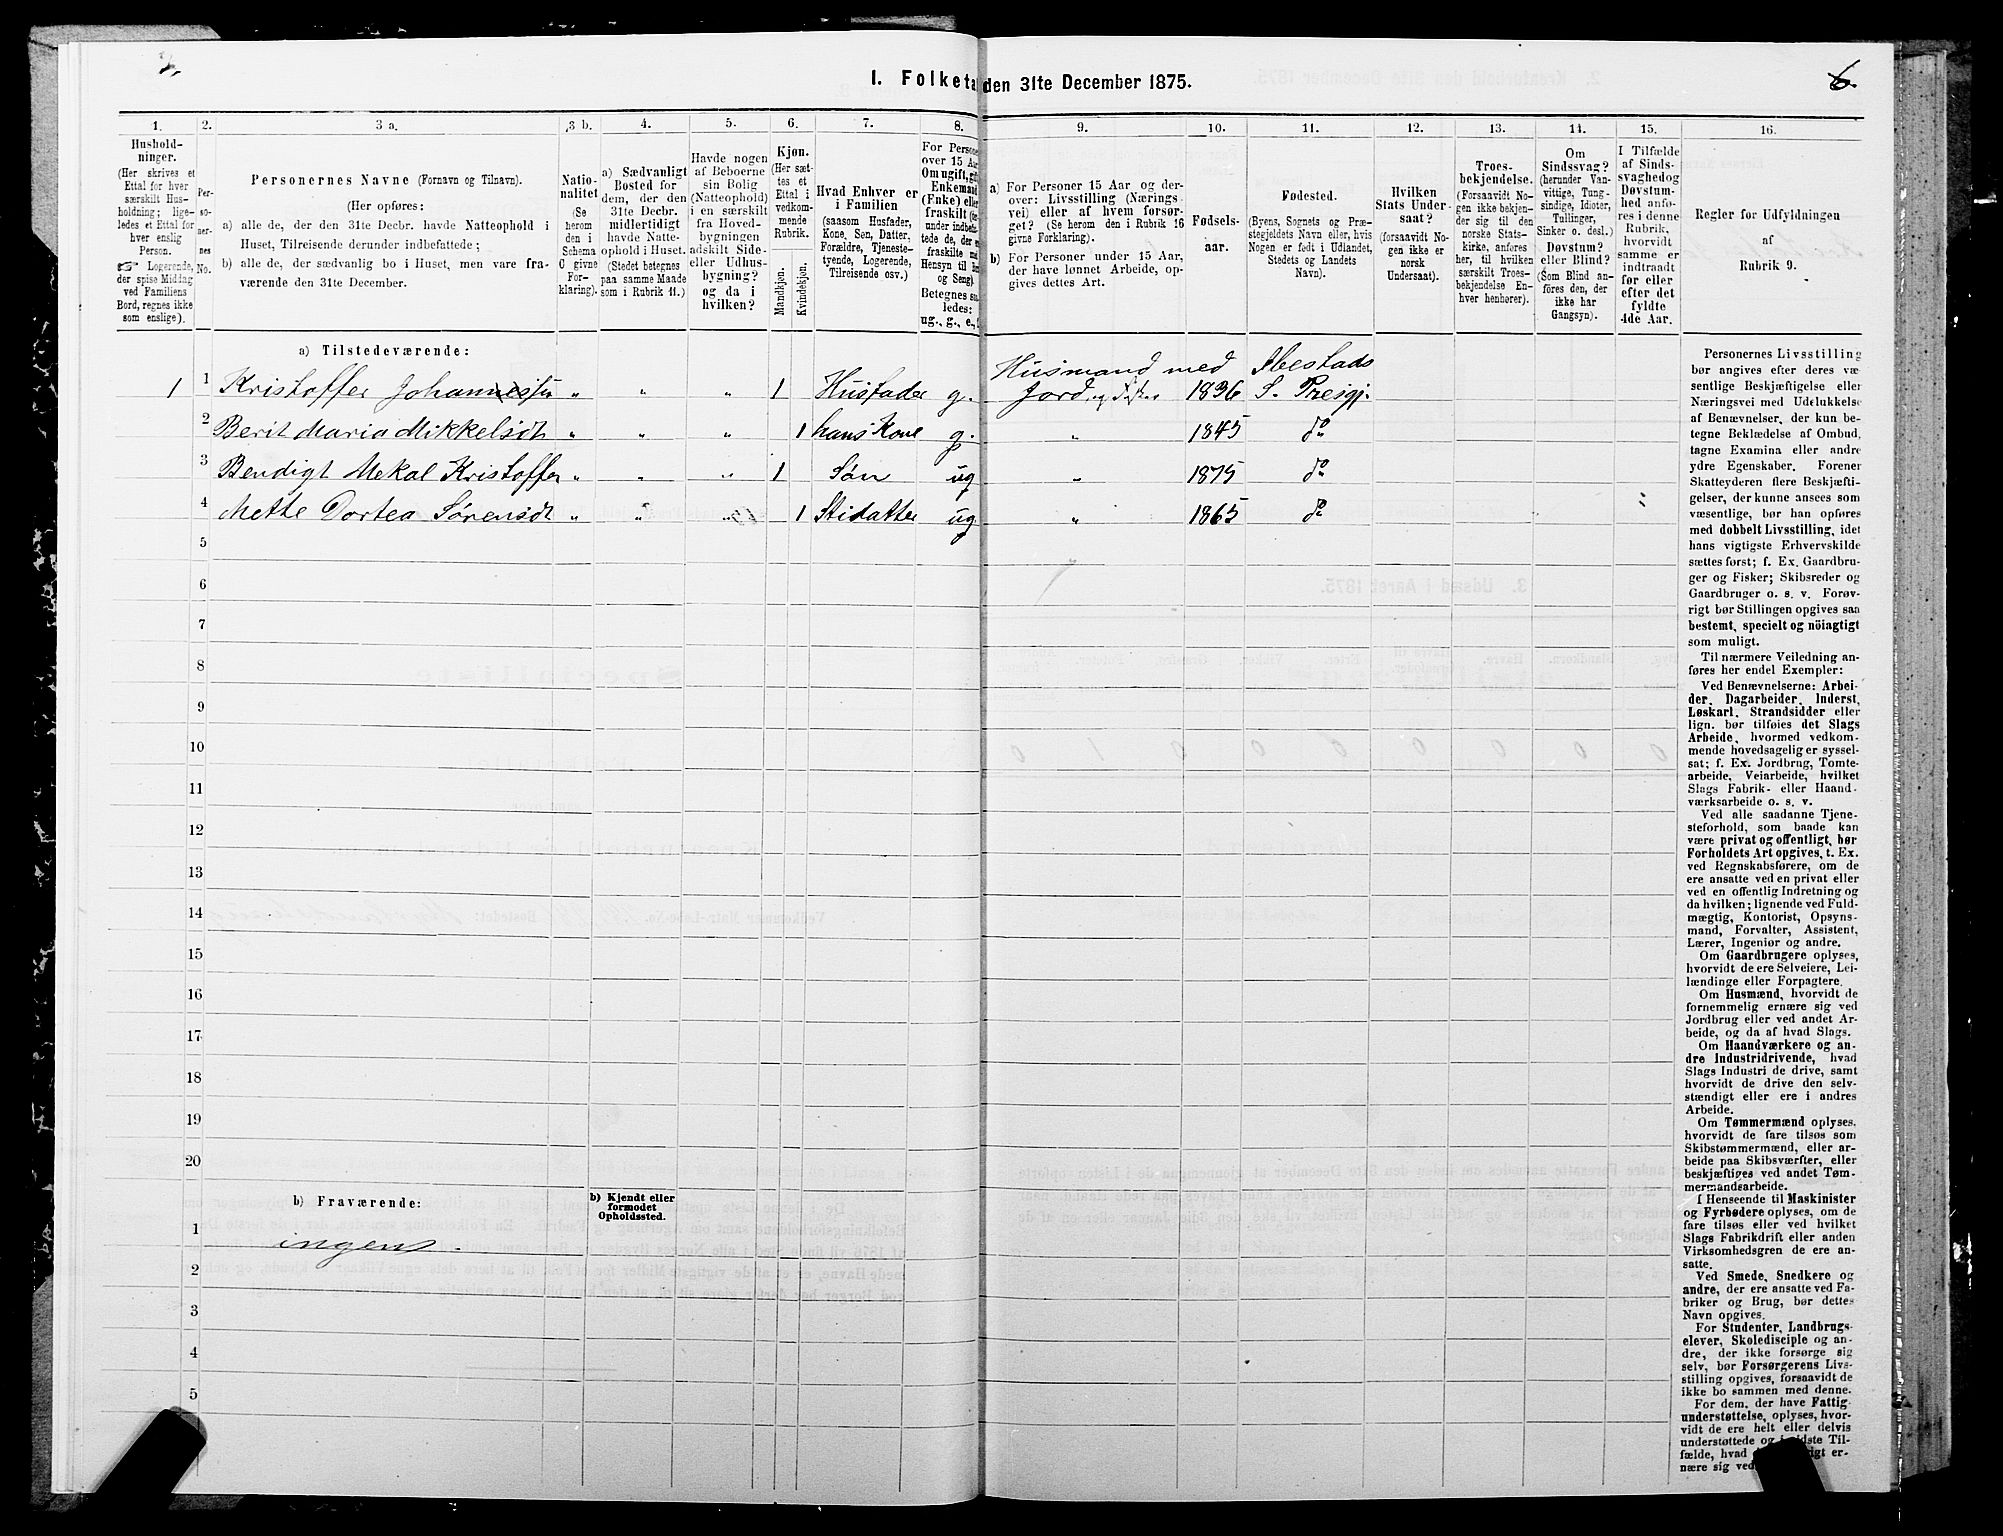 6.
I. Folketa den 31te December 1875.
1.
Hushold-
ninger.
(Her skrives et
Ettal for hver
særskilt Hus-
holdning; lige-
ledes et Ettal for
hver enslig
Person.
Logerende,
der spise Middag
ved Familiens
Bord, regnes ikke
som enslige).
2.
Per-
so-
ner-
nes
No.
3 a.
Personernes Navne (Fornavn og Tilnavn).
(Her opføres:
a) alle de, der den 31te Decbr. havde Natteophold i
Huset, Tilreisende derunder indbefattede;
b) alle de, der sædvanlig bo i Huset, men vare fra-
værende den 31te December.
3 b.
Natio-
nalitet
(Se
herom
den i
Schema
C givne
For-
klaring).
4.
a) Sædvanligt
Bosted for
dem, der den
31te Decbr.
midlertidigt
havde Natte-
ophold i Huset.
(Stedet betegnes
paa samme Maade
som i Rubrik 11.)
5.
Havde nogen
af Beboerne
sin Bolig
(Natteophold)
i en særskilt
fra Hoved-
bygningen
adskilt Side-
eller Udhus-
bygning?
og da i
hvilken?
6.
Kjøn.
(Her sæt-
tes et
Ettal i
vedkom-
mende
Rubrik.
Mandkjøn.
Kvindekjøn.
7.
Hvad Enhver er
i Familien
(saasom Husfader,
Kone, Søn, Datter,
Forældre, Tjeneste-
tyende, Logerende,
Tilreisende osv.)
8.
For Persone
over 15 Aa
Om ugift, gif
Enkemand
(Enke) eller
fraskilt (de
under indbefa-
tede de, der e
fraskilte me
Hensyn til B
og Seng).
Betegnes sa
ledes:
ug., g., e.,
9.
a) For Personer 15 Aar og der-
over: Livsstilling (Nærings-
vei) eller af hvem forsør-
get? (Se herom den i Rubrik 16
givne Forklaring).
b) For Personer under 15 Aar,
der have lønnet Arbeide, op-
gives dettes Art.
10.
Fødsels-
aar.
11.
Fødested.
(Byens, Sognets og Præ-
stegjeldets Navn eller, hvis
Nogen er født i Udlandet,
Stedets og Landets
Navn).
12.
Hvilken
Stats Under-
saat?
(forsaavidt No-
gen ikke er
norsk
Undersaat).
13.
Troes-
bekjendelse.
(Forsaavidt No-
gen ikke bekjen-
der sig til den
norske Stats-
kirke, anføres
her, til hvilken
særskilt Troes-
bekjendelse En-
hver henhører).
14.
Om
Sindssvag?
(herunder Van-
vittige, Tung-
sindige, Idioter,
Tullinger,
Sinker o. desl.)
Døvstum?
eller Blind?
(Som Blind an-
føres den, der
ikke har
Gangsyn).
15.
I Tilfælde
af Sinds-
svaghed og
Døvstum-
hed anfø-
res i denne
Rubrik,
hvorvidt
samme er
indtraadt
før eller
efter det
fyldte
4de Aar.
16.
Regler for Udfyldningen
af
Rubrik 9.
a) Tilstedeværende:
Husmand med Ibestads
1 1 Kristoffer Johannessen " " " 1 Husfader g. Jord og Fisker 1836 S. Presgj.
2 Berit Maria Mikkelsdt " " " 1 hans Kone g. " 1845 do
3 Bendigt Mekal Kristoffer " " " 1 Søn ug " 1875 do
4 Mette Dortea Sørensdt " " " 1 Stidatter ug " 1865 do
5
6
7
8
9
10
11
12
13
14
15
16
17
18
19
20
b) Fraværende:
b) Kjendt eller
formodet
Opholdssted.
1 ingen
2
3
4
5
Personernes Livsstilling
bør angives efter deres væ
sentlige Beskjæftigelse eller
Næringsvei med Udelukkelse
af Benævnelser, der kun be-
tegne Beklædelse af Ombud,
tagne Examina eller andre
ydre Egenskaber. Forener
Skatteyderen flere Beskjæfti-
gelser, der kunne ansees som
væsentlige, bør han opføres
med dobbelt Livsstilling, idet
hans vigtigste Erhvervskilde
sættes først; f. Ex. Gaardbru-
ger og Fisker; Skibsreder og
Gaardbruger o. s. v. Forøv-
rigt bør Stillingen opgives saa
bestemt, specielt og nöiagtigt
som muligt.
Til nærmere Veiledning an-
føres her endel Exempler:
Ved Benævnelserne: Arbei-
der, Dagarbeider, Inderst,
Løskarl, Strandsidder eller
lign. bør tilføies det Slags
Arbeide, hvormed vedkom-
mende hovedsagelig er syssel-
sat; f. Ex. Jordbrug, Tomte-
arbeide, Veiarbeide, hvilket
Slags Fabrik- eller Haand-
værksarbeide o. s. v.
Ved alle saadanne Tjene-
steforhold, som baade kan
være privat og offentligt, bør
Forholdets Art opgives, t. Ex.
ved Regnskabsførere, om de
ere ansatte ved en privat eller
ved en offentlig Indretning og
da hvilken; lignende ved Fuld-
mægtig, Kontorist, Opsyns-
mand, Forvalter, Assistent,
Lærer, Ingeniør og andre.
Om Gaardbrugere oplyses,
hvorvidt de ere Selveiere, Lei-
lændinge eller Forpagtere.
Om Husmænd, hvorvidt de
fornemmelig ernære sig ved
Jordbrug eller ved andet Ar-
beide, og da af hvad Slags.
Om Haandværkere og an-
dre Industridrivende, hvad
Slags Industri de drive, samt
hvorvidt de drive den selv-
stændigt eller ere i andres
Arbeide.
Om Tømmermænd oplyses,
hvorvidt de fare tilsøs som
Skibstømmermænd, eller ar-
beide paa Skibsværfter, eller
beskjæftiges ved andet Tøm-
mermandsarbeide.
I Henseende til Maskinister
og Fyrbødere oplyses, om de
fare tilsøs eller ved hvilket
Slags Fabrikdrift eller anden
Virksomhedsgren de ere an-
satte.
Ved Smede, Snedkere og
andre, der ere ansatte ved Fa-
briker og Brug, bør dettes
Navn opgives.
For Studenter, Landbrugs-
elever, Skoledisciple og an-
dre, der ikke forsørge sig
selv, bør Forsørgerens Livs-
stilling opgives, forsaavidt de
ikke bo sammen med denne.
For dem, der have Fattig-
understøttelse, oplyses, hvor-
vidt de ere helt eller delvis
understøttede og i sidste Til-
fælde, hvad de forøvrigt er-
nære sig ved